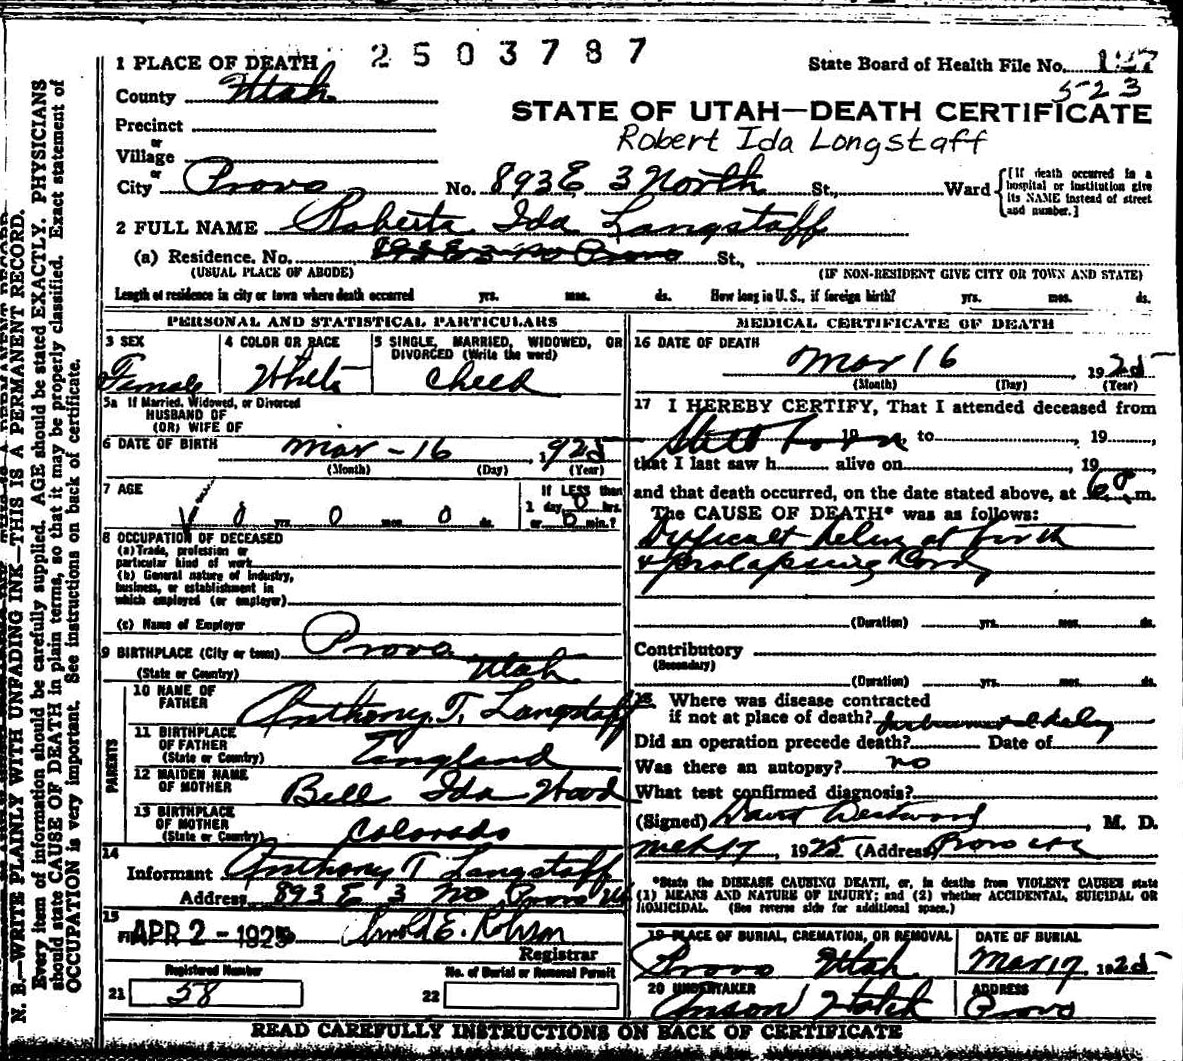 2503787
1 PLACE OF DEATH
State Board of Health File No. 127
523
County Utah
STATE OF UTAH—DEATH CERTIFICATE
Precinct
Robert Ida Longstaff
or
Village
or
City Provo No. 893 E 3 North St., Ward [If death occurred in a hospital or institution give its NAME instead of street and number.]
2 FULL NAME Roberta Ida Langstaff
(a) Residence. No. 893 E 3 No Provo St.,
(USUAL PLACE OF ABODE) (IF NON-RESIDENT GIVE CITY OR TOWN AND STATE)
Length of residence in city or town where death occurred yrs. mos. ds. How long in U. S., if foreign birth? yrs. mos. ds.
PERSONAL AND STATISTICAL PARTICULARS
3 SEX 4 COLOR OR RACE 5 SINGLE, MARRIED, WIDOWED, OR
DIVORCED (Write the word)
Female White Child
5a If Married, Widowed, or Divorced
HUSBAND OF
(OR) WIFE OF
6 DATE OF BIRTH Mar - 16, 1925
(Month) (Day) (Year)
7 AGE If LESS than
0 yrs. 0 mos. 0 ds. 1 day, 0 hrs.
or 0 min.?
8 OCCUPATION OF DECEASED
(a) Trade, profession or
particular kind of work
(b) General nature of industry,
business, or establishment in
which employed (or employer)
(c) Name of Employer
9 BIRTHPLACE (City or town) Provo
(State or Country) Utah
PARENTS
10 NAME OF
FATHER Anthony T. Langstaff
11 BIRTHPLACE
OF FATHER
(State or Country) England
12 MAIDEN NAME
OF MOTHER Bell Ida Hood
13 BIRTHPLACE
OF MOTHER
(State or Country) Colorado
14
Informant Anthony T Langstaff
Address 893 E 3 No Provo Ut
15
APR 2 - 1925 Arnold E. Robison
Registrar
Registered Number No. of Burial or Removal Permit
21 58 22
MEDICAL CERTIFICATE OF DEATH
16 DATE OF DEATH
Mar 16, 1925
(Month) (Day) (Year)
17 I HEREBY CERTIFY, That I attended deceased from
Still born 19 to 19
that I last saw h alive on 19
and that death occurred, on the date stated above, at 6 P m.
The CAUSE OF DEATH* was as follows:
Difficult at birth
& prolapsing Cord
(Duration) yrs. mos. ds.
Contributory
(Secondary)
(Duration) yrs. mos. ds.
18 Where was disease contracted
if not at place of death?
Did an operation precede death? Date of
Was there an autopsy? no
What test confirmed diagnosis?
(Signed) David Westwood, M. D.
Mch 17, 1925 (Address) Provo Ut
*State the DISEASE CAUSING DEATH, or, in deaths from VIOLENT CAUSES state
(1) MEANS AND NATURE OF INJURY; and (2) whether ACCIDENTAL, SUICIDAL OR
HOMICIDAL. (See reverse side for additional space.)
19 PLACE OF BURIAL, CREMATION, OR REMOVAL DATE OF BURIAL
Provo Utah Mar 17 1925
20 UNDERTAKER ADDRESS
Anson Hatch Provo
READ CAREFULLY INSTRUCTIONS ON BACK OF CERTIFICATE
N. B.—WRITE PLAINLY WITH UNFADING INK—THIS IS A PERMANENT RECORD.
Every item of information should be carefully supplied. AGE should be stated EXACTLY. PHYSICIANS
should state CAUSE OF DEATH in plain terms, so that it may be properly classified. Exact statement of
OCCUPATION is very important. See instructions on back of certificate.